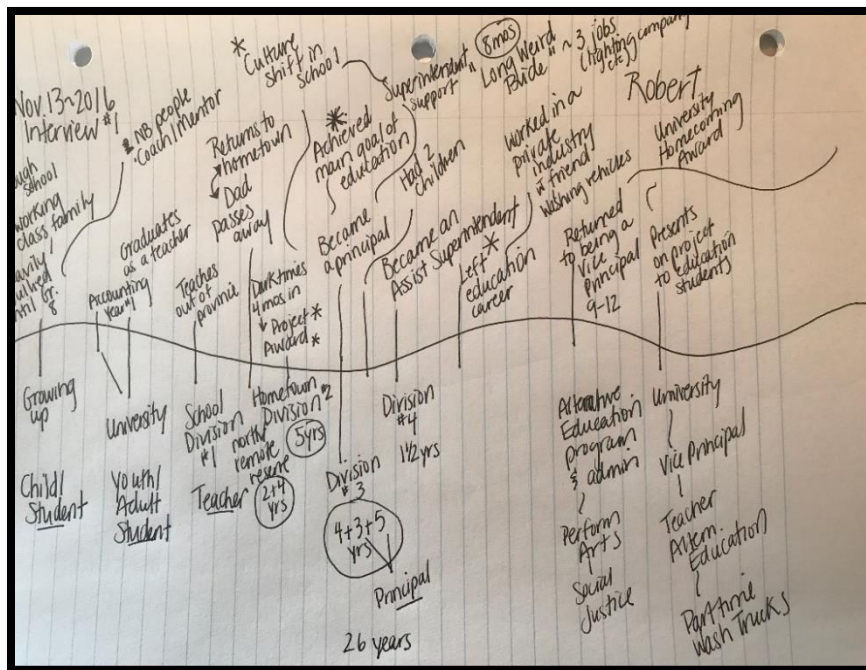 Nov. 13~2016
Interview #1
NB people
Coach/Mentor
school
working
class family
until Gr.
8
Accounting
Year #1
Graduates
as a teacher
Teaches
out of
provnie
Returns to
hometown
Dad
passes
away
* Culture
shift in
school
Dark times
4 mos in
Project *
Award *
*
Achieved
main goal of
education
Became
a principal
Had 2
children
Superintendent
support
Became an
Assist Superintendent
Left *
education
career
8 mos
"Long Weird
Ride" ~ 3 jobs
(lighting company
etc)
Worked in a
private
industry
w friend
washing vehicles
Returned
to being a
Vice
Principal
9-12
Robert
University
Homecoming
Award
Presents
on project
to education
students
Growing
up
Child/
Student
University
Youth/
Adult
Student
School
Division
#1
Teacher
north/
remote
reserve
2+4
yrs
Hometown
Division #2
5 yrs
Division
#3
4+3+5
yrs
Principal
26 years
Division
#4
1 1/2 yrs
Alternative
Education
program
& admin
Perform
Arts
Social
Justice
University
Vice Principal
Teacher
Altern.
Education
Part time
Wash Trucks